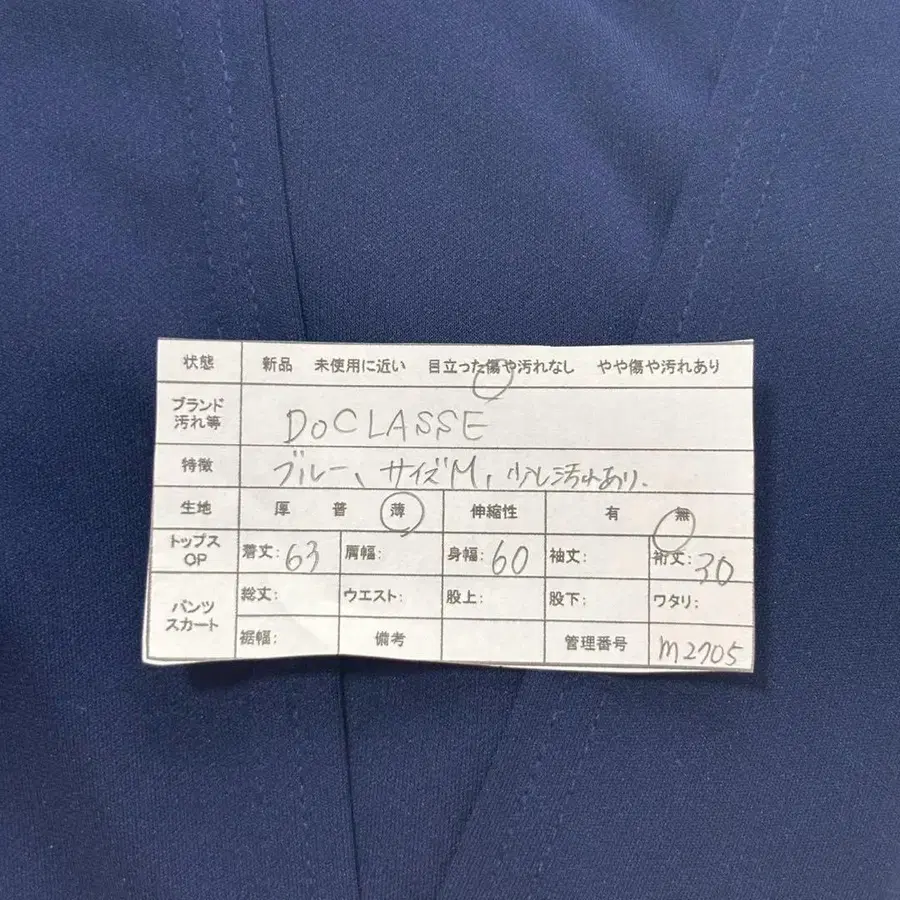 状態 新品 未使用に近い 目立った傷や汚れなし やや傷や汚れあり
ブランド
汚れ等
DoCLASSE
特徴 ブルー、サイズM、少し汚れあり.
生地 厚 普 薄 伸縮性 有 無
トップス
OP
着丈: 63 肩幅: 身幅: 60 袖丈: 裄丈: 30
パンツ
スカート
総丈: ウエスト: 股上: 股下: ワタリ:
裾幅: 備考 管理番号 m2705